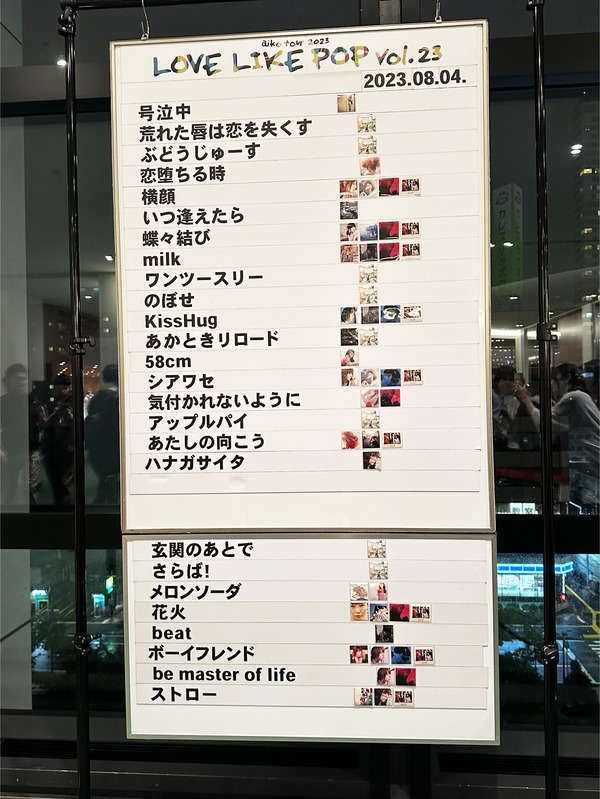 aiko tour 2023
LOVE LIKE POP vol.23
2023.08.04.
号泣中
荒れた唇は恋を失くす
ぶどうじゅーす
恋堕ちる時
横顔
いつ逢えたら
蝶々結び
milk
ワンツースリー
のぼせ
KissHug
あかときリロード
58cm
シアワセ
気付かれないように
アップルパイ
あたしの向こう
ハナガサイタ
玄関のあとで
さらば!
メロンソーダ
花火
beat
ボーイフレンド
be master of life
ストロー